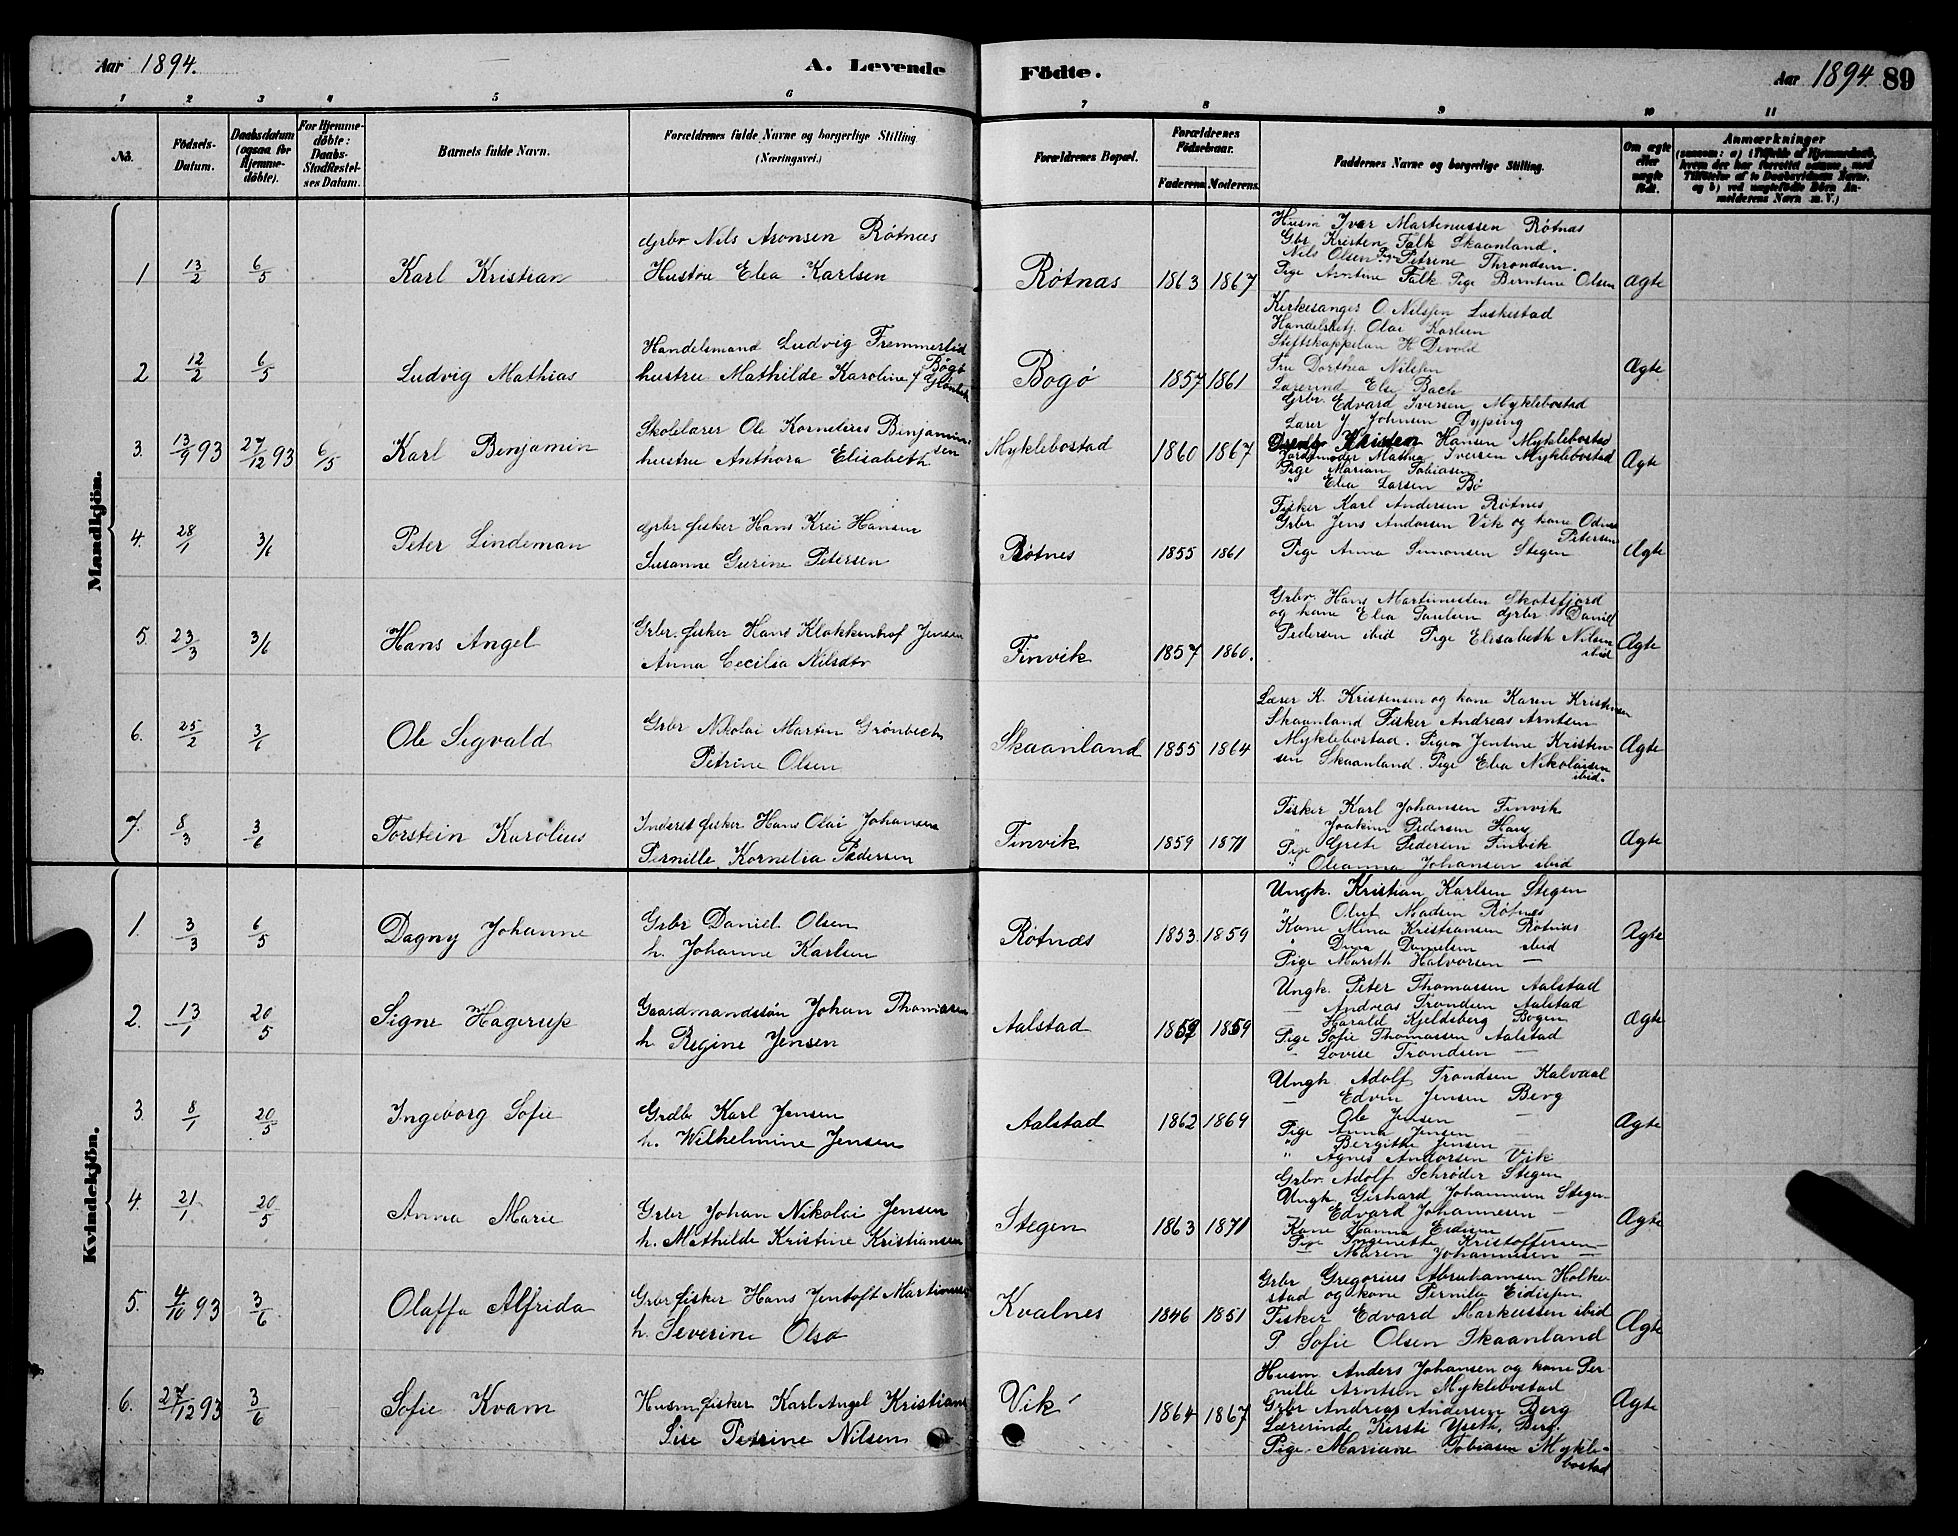 Aar 1894. A. Levende Födte. Aar 1894. 89
1 2 3 4 5 6 7 8 9 10 11
No. Födsels-Datum. Daabsdatum (ogsaa for Hjemme-döbte). For Hjemme-döbte: Daabs-Stadfæstel-ses Datum. Barnets fulde Navn. Forældrenes fulde Navne og borgerlige Stilling (Næringsvei.) Forældrenes Bopæl. Forældrenes Födselsaar. Faderens. Moderens. Faddernes Navne og borgerlige Stilling. Om ægte eller uægte födt. Anmærkninger
Mandkjön.
1 13/2 6/5 Karl Kristian
Grbr Nils Aronsen Røtnæs
Hustru Elea Karlsen
Røtnas 1863 1867
Husm Iver Martenussen Røtnas
Gbr Kristen Falk Skaanland.
Nils Olsen Pige Petrine Throndsen.
Pige Arntine Falk Pige Berntine Olsen
Ægte
2 12/2 6/5 Ludvig Mathias
Handelsmand Ludvig Tremmerlid Bogø
hustru Mathilde Karoline f
Bogø 1857 1861
Kirkesanger O Nilssen Leskestad
Handelsbetj. Olai Karlsen
Stiftskappelan H Devold
Fru Dorthea Nilssen
Lærerind Else Bach
Ægte
3. 13/9 93 27/12 93 6/5 Karl Benjamin
Skolelærer Ole Kornelius Benjaminsen
hustru Anthora Elisabeth
Myklebostad 1860 1867
Grbr. Edvard Iversen Myklebostad
Lærer J Johnsen Dyping
Kristen Hansen Myklebostad
Jordemoder Mathea Iversen Myklebostad
Pige Mariam Tobiasen
" Elea Larsen Bø
Ægte
4. 28/1 3/6 Peter Lindeman
Grbr fisker Hans Krei Hansen
Susanne Gurine Petersen
Røtnes 1855 1861
Fisker Karl Andersen Røtnes
Grbr Jens Andorsen Vik og kone Odine Petersen
Pige Anna Simonsen Stegen
Ægte
5. 23/3 3/6 Hans Angel
Grbr. fisker Hans Klokkenhof Jensen
Anna Cecilia Nilsdtr
Finvik 1857 1860.
Grbr Hans Martinussen Skotsfjord
og kone Elea Paulsen Grbr Daniel
Pedersen ibid Pige Elisabeth Nilsen ibid
Ægte
6. 25/2 3/6 Ole Sigvald
Grbr Nikolai Martin Grønbech
Petrine Olsen
Skaanland 1855 1864
Lærer K. Kristensen og kone Karen Kristensen
Skaanland Fisker Andreas Arntsen
Myklebostad. Pigen Jentine Kristen-
sen Skaanland. Pige Elea Nikolaisen ibid.
Ægte
7. 8/3 3/6 Torstein Karolius
Inderst fisker Hans Olai Johansen
Pernille Kornelia Pedersen
Finvik 1859 1871
Fisker Karl Johansen Finvik
" Joakim Pedersen Haug
Pige Grete Pedersen Finvik
" Oleanna Johansen ibid
Ægte
Kvindekjön.
1. 3/3 6/5 Dagny Johanne
Grbr Daniel Olsen
h. Johanne Karlsen
Røtnæs 1853 1859
Ungk. Kristian Karlsen Stegen
" Oluf Madsen Røtnes
Kone Mina Kristiansen Røtnæs
" Dina Danielsen ibid
Pige Mareth Halvorsen —
Ægte
2. 13/1 20/5 Signe Hagerup
Gaardmandssön Johan Thomassen
h. Regine Jensen
Aalstad 1859
Ungk. Peter Thomassen Aalstad
— Andreas Trondsen Aalstad
— Harald Kjeldsberg Bogen
Pige Sofie Thomassen Aalstad
— Lovise Trondsen —
Ægte
3. 8/1 20/5 Ingeborg Sofie
Grdbr Karl Jensen
h. Wilhelmine Jensen
Aalstad 1862 1869
Ungk. Adolf Trondsen Kalvaal
— Edvin Jensen Berg
Ole Jensen —
Pige Anna Jensen
" Bergitte Jensen —
" Agnes Andorsen Vik
Ægte
4. 21/1 20/5 Anna Marie
Grbr Johan Nikolai Jensen
h. Mathilde Kristine Kristiansen
Stegen 1863 1871
Grbr Adolf Schrøder Stegen
Ungk Gerhard Johannesen Stegen
— Edvard Johannesen —
Kone Hanna Eidisen —
Pige Ingenette Kristoffersen —
— Maren Johannesen —
Ægte
5. 4/10 93 3/6 Olaffa Alfrida
Grbr fisker Hans Jentoft Martinussen
h. Severine Olsd
Kvalnes 1846 1851
Grbr Gregorius Abrahamsen Holke-
stad og kone Pernille Eidisen
Fisker Edvard Markussen ibid
P Sofie Olsen Skaanland
Ægte
6. 27/12 93 3/6 Sofie Kvam
Husm fisker Karl Angel Kristians
Lise Petrine Nilsen
Vik 1864 1867
Husm Anders Johansen og kone Per-
nille Arntsen Myklebostad
Grbr Andreas Andersen Berg
Lærerinde Kirsti Yseth, Berg.
Pige Mariane Tobiasen Mykle-
bostad
Ægte